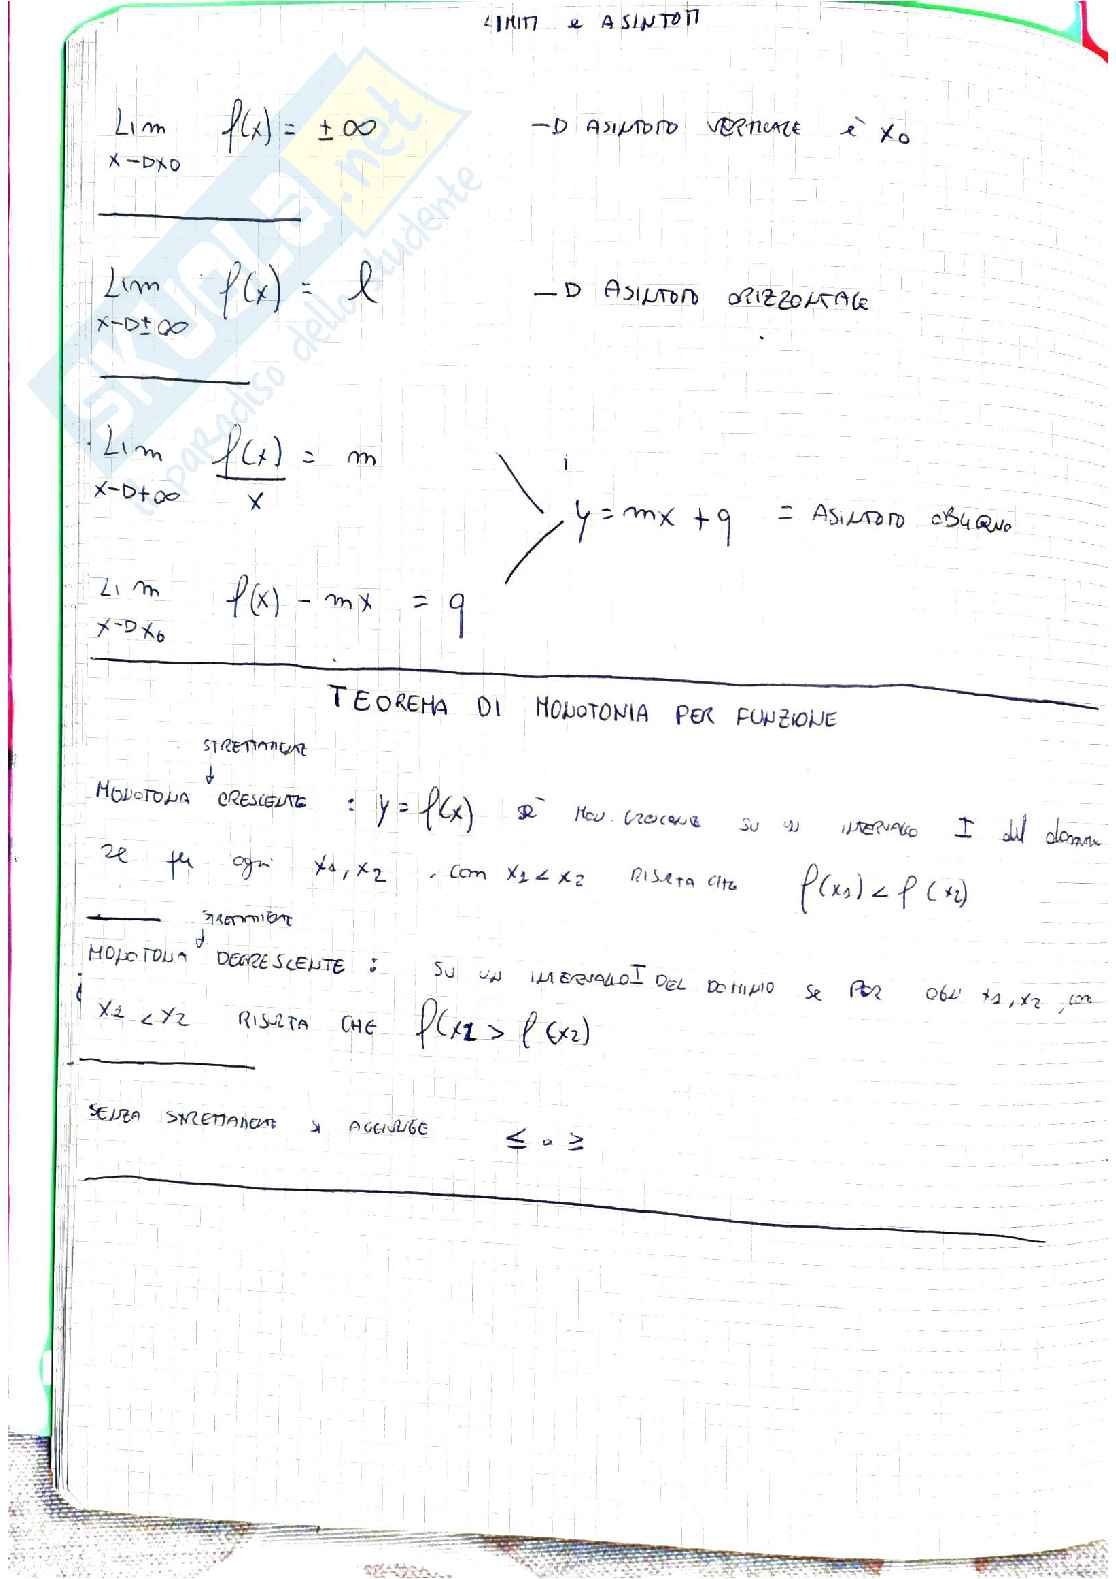 LIMITI e ASINTOTI
Lim f(x) = ±∞ —D ASINTOTO VERTICALE è x0
x—Dx0
Lim f(x) = l —D ASINTOTO ORIZZONTALE
x—D±∞
Lim f(x)/x = m
x—D+∞
y = mx + q = ASINTOTO OBLIQUO
Lim f(x) - mx = q
x—Dx0
TEOREMA DI MONOTONIA PER FUNZIONE
STRETTAMENTE
MONOTONA CRESCENTE : y = f(x) SU UN INTERVALLO I del
se per ogni x1, x2, con x1 < x2 RISULTA CHE f(x1) < f(x2)
STRETTAMENTE
MONOTONA DECRESCENTE : SU UN INTERVALLO I DEL DOMINIO SE PER OGNI x1, x2, con
x1 < x2 RISULTA CHE f(x1 > f(x2)
SENZA STRETTAMENTE si AGGIUNGE ≤ o ≥
SKUOLA.net
il paradiso dello studente